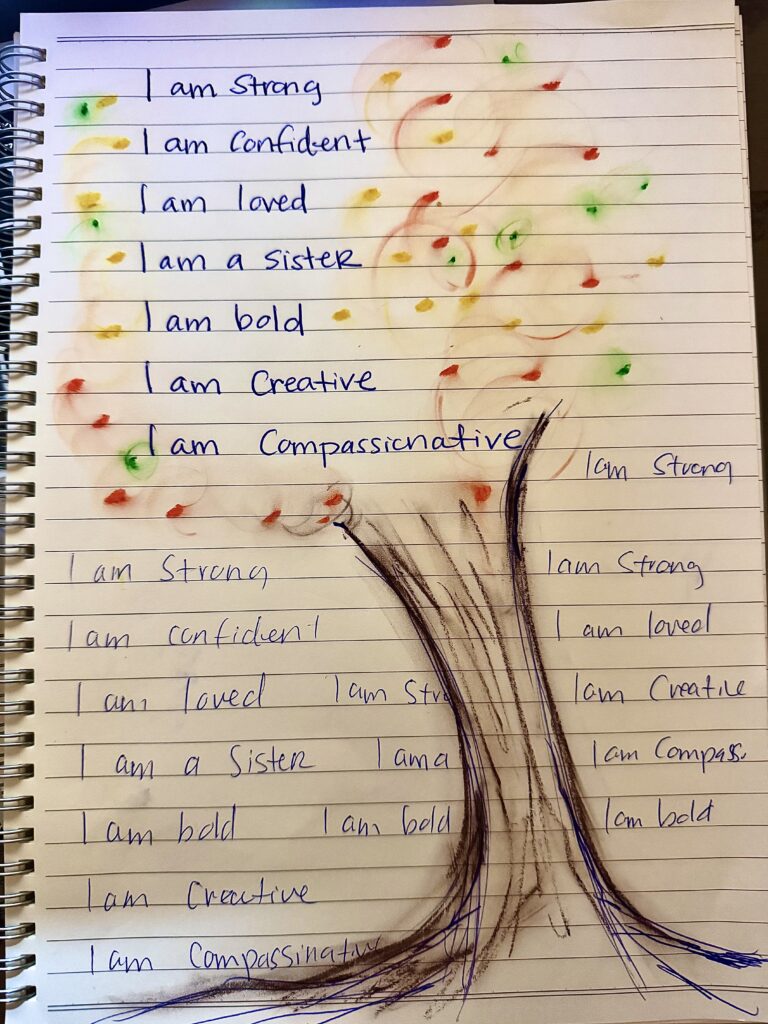 I am Strong
I am Confident
I am loved
I am a sister
I am bold
I am Creative
I am Compassionative
I am Strong
I am Strong
I am Strong
I am confident
I am loved
I am loved
I am Str
I am Creative
I am a Sister
I am a
I am Compass.
I am bold
I am bold
I am bold
I am Creative
I am Compassinative